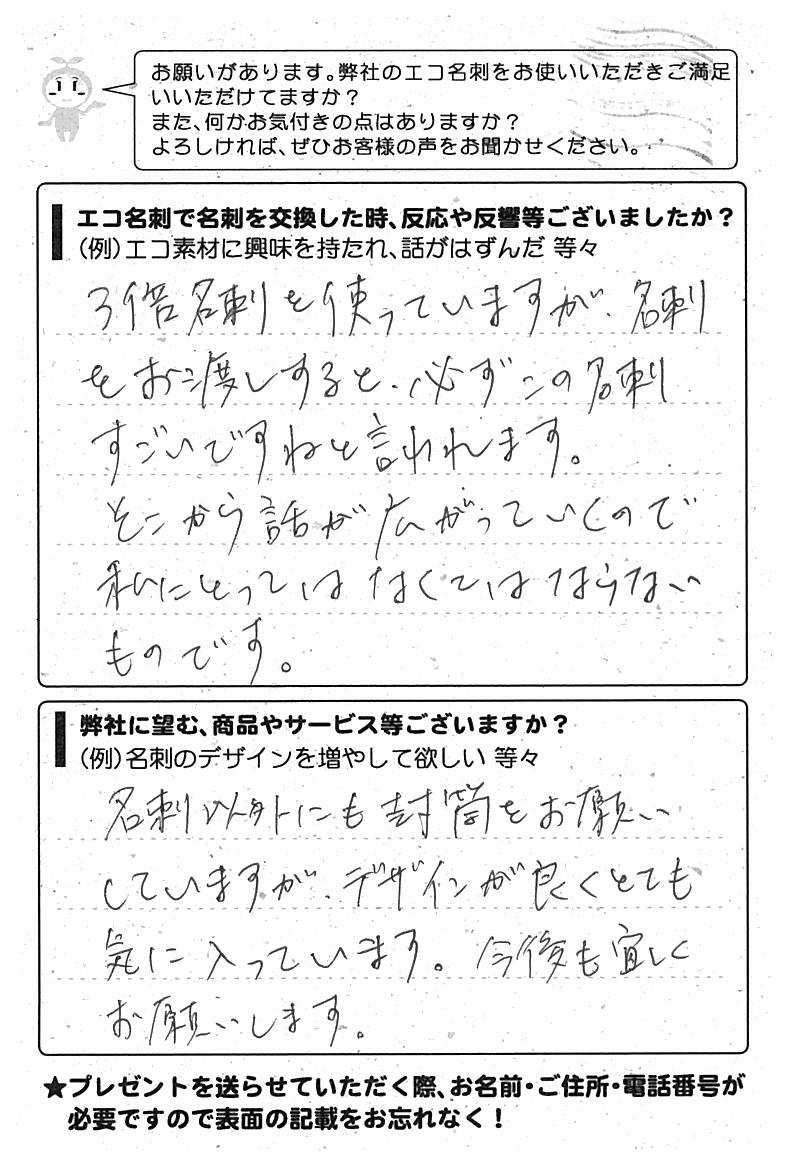 お願いがあります。弊社のエコ名刺をお使いいただきご満足
いいただけてますか？
また、何かお気付きの点はありますか？
よろしければ、ぜひお客様の声をお聞かせください。
エコ名刺で名刺を交換した時、反応や反響等ございましたか？
（例）エコ素材に興味を持たれ、話がはずんだ 等々
3倍名刺を使っていますが、名刺
をお渡しすると、必ずこの名刺
すごいですねと言われます。
そこから話が広がっていくので
私にとってはなくてはならない
ものです。
弊社に望む、商品やサービス等ございますか？
（例）名刺のデザインを増やして欲しい 等々
名刺以外にも封筒をお願い
していますが、デザインが良くとても
気に入っています。今後も宜しく
お願いします。
★プレゼントを送らせていただく際、お名前・ご住所・電話番号が
必要ですので表面の記載をお忘れなく！